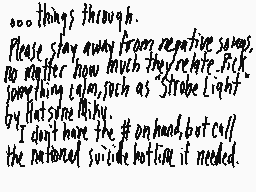 ...things through.
Please stay away from negative songs,
no matter how much they relate. Pick
something calm, such as "Strobe Light"
by Hatsune Miku.
I don't have the # on hand, but call
the national suicide hotline if needed.